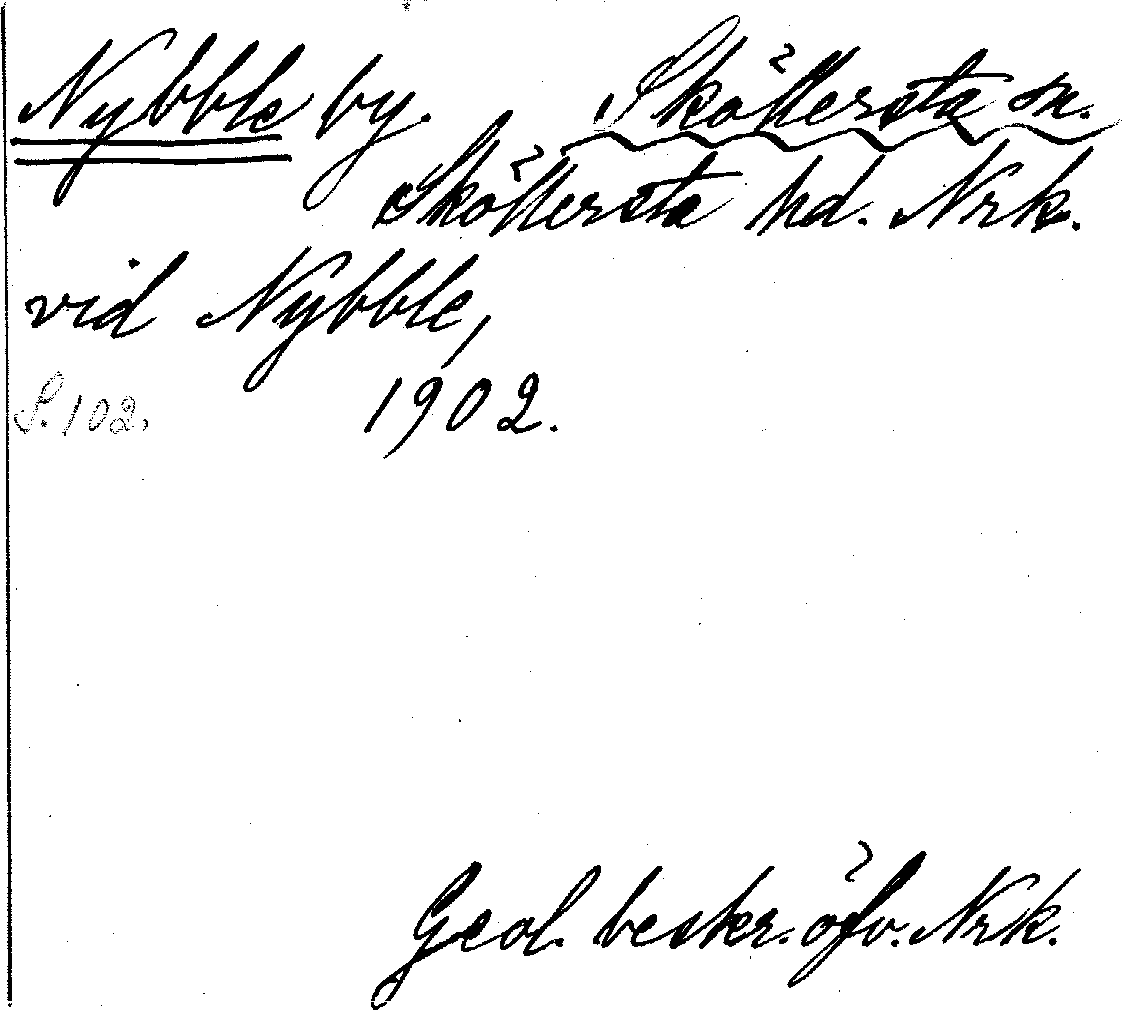 Nybble by. Sköllersta sn.
Sköllersta hd. Nrk.
vid Nybble,
S. 102. 1902.
Geol. beskr. öfv. Nrk.